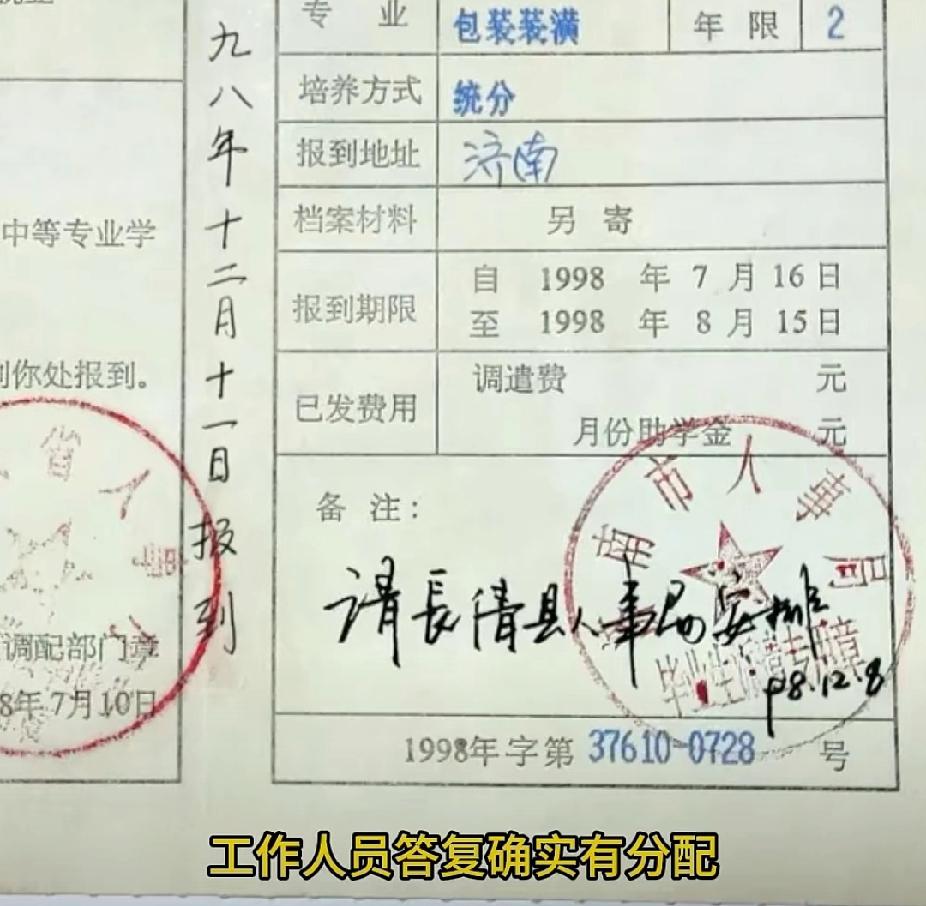 中等专业学
到你处报到。
省人
调配部门章
8年7月10日
九八年十二月十一日报到
专 业 包装装潢 年 限 2
培养方式 统分
报到地址 济南
档案材料 另 寄
报到期限 自 1998 年 7 月 16 日
至 1998 年 8 月 15 日
已发费用 调遣费 元
月份助学金 元
备 注：
请長清县人事局安排
98.12.8
南市人事局
毕业生
专用章
1998年字第 37610-0728 号
工作人员答复确实有分配